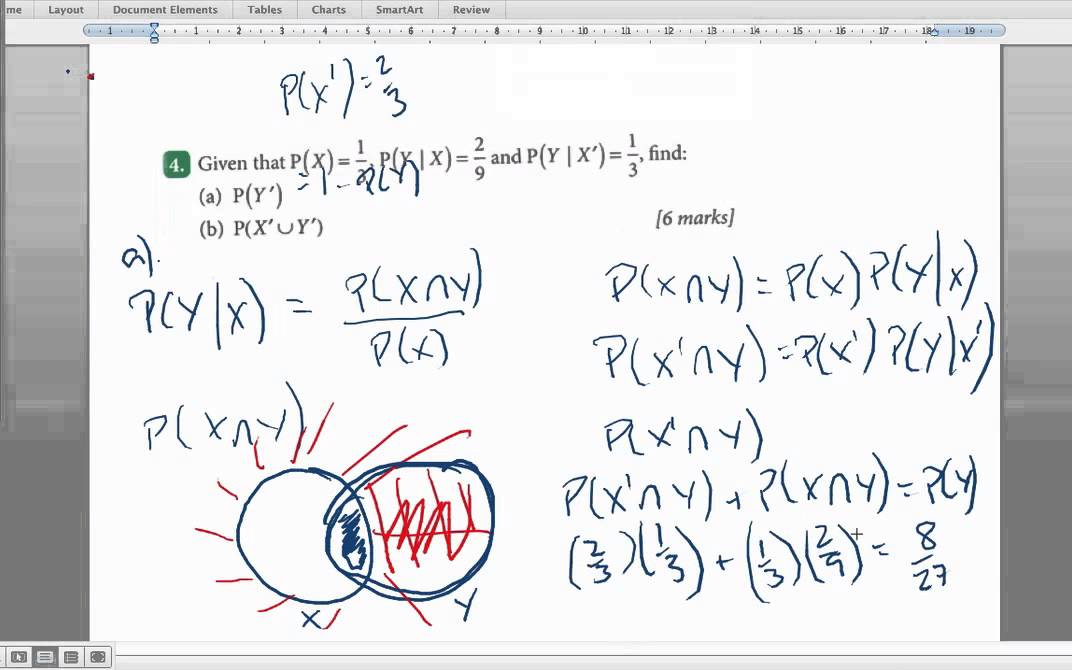 me Layout Document Elements Tables Charts SmartArt Review
1 1 2 3 4 5 6 7 8 9 10 11 12 13 14 15 16 17 18 19
P(X') = 2/3
4. Given that P(X) = 1/3, P(Y | X) = 2/9 and P(Y | X′) = 1/3, find:
(a) P(Y′) = 1 - P(Y)
(b) P(X′ ∪ Y′) [6 marks]
a).
P(Y|X) = P(X∩Y)/P(X)
P(X∩Y)
X Y
P(X∩Y) = P(X) P(Y|X)
P(X'∩Y) = P(X') P(Y|X')
P(X'∩Y)
P(X'∩Y) + P(X∩Y) = P(Y)
(2/3)(1/3) + (1/3)(2/9) = 8/27